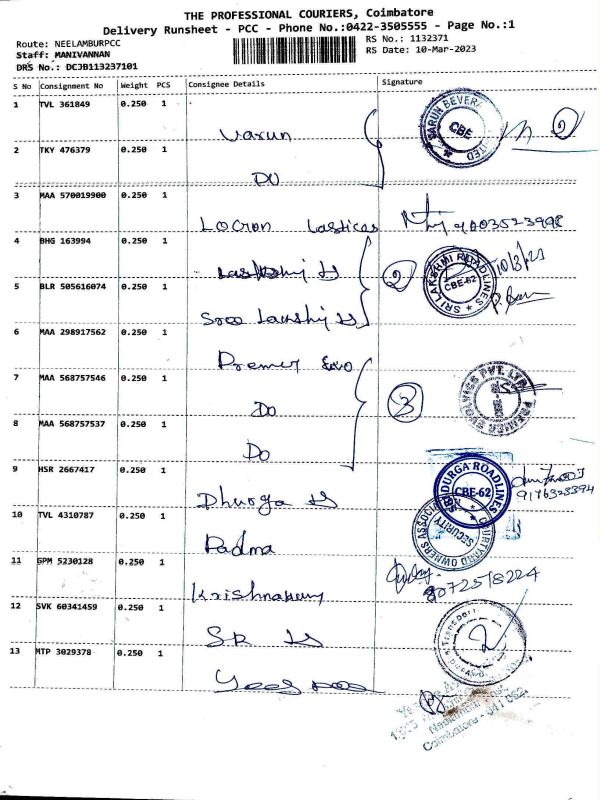 THE PROFESSIONAL COURIERS, Coimbatore
Delivery Runsheet - PCC - Phone No.:0422-3505555 - Page No.:1
Route: NEELAMBURPCC
RS No.: 1132371
Staff: MANIVANNAN
RS Date: 10-Mar-2023
DRS No.: DCJB113237101
S No Consignment No Weight PCS Consignee Details Signature
1 TVL 361849 0.250 1
Varun
CBE
2
2 TKY 476379 0.250 1
DO
3 MAA 570019900 0.250 1
9003523998
4 BHG 163994 0.250 1
2
SRI LAKSHMI ROADLINES
CBE-62
10/3/23
5 BLR 505616074 0.250 1
Sree
6 MAA 298917562 0.250 1
Premier
7 MAA 568757546 0.250 1
Do
3
PREMIER EVOLVICS PVT. LTD.
8 MAA 568757537 0.250 1
Do
9 HSR 2667417 0.250 1
Dhurga
SRI DURGA ROADLINES
CBE-62
10 TVL 4310787 0.250 1
Padma
COURTYARD OWNERS ASSOCI
SECURITY
11 GPM 5230128 0.250 1
12 SVK 60341459 0.250 1
SR
2
13 MTP 3029378 0.250 1
Coimbatore - 641 062